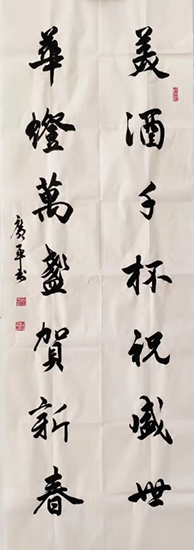 美酒千杯祝盛世
華燈萬盞賀新春
廣平書